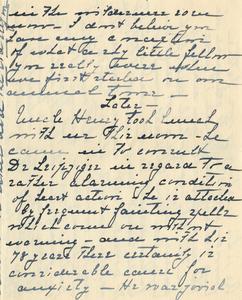 in the
now - I don't believe you
have any conception
of what a very little fellow
you really were when
we first started on our
annual tours -
Later -
Uncle Henry took lunch
with us this noon - He
came in to consult
Dr Leipziger in regard to a
rather alarming condition
of heart action He is attacked
by frequent fainting spells
which come on without
warning - and with his
78 years there certainly is
considerable cause for
anxiety - He was jovial